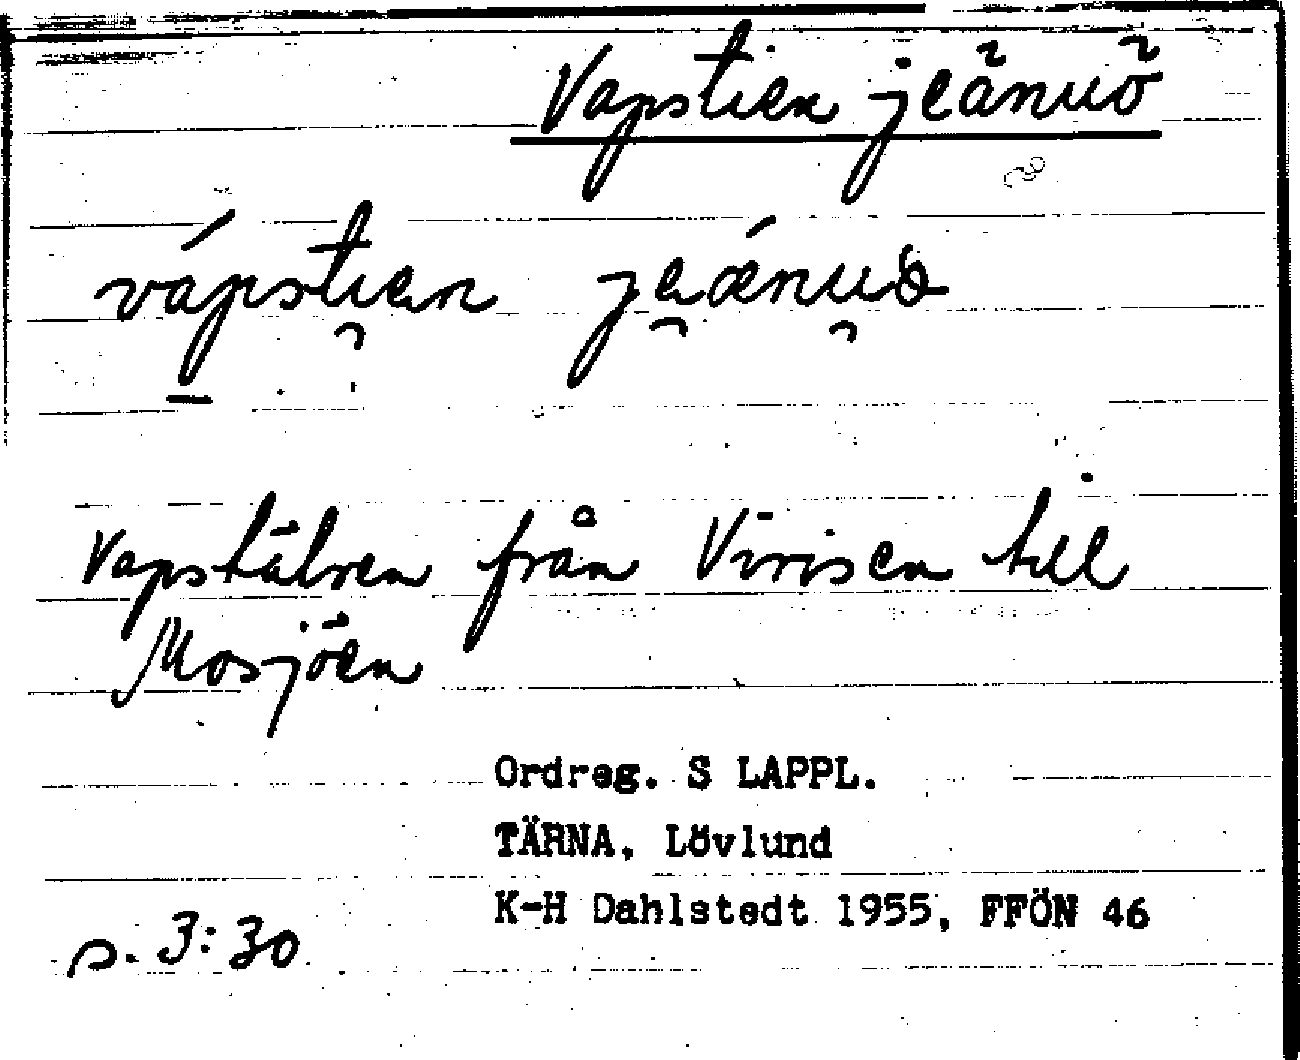 Vapstien jeãnuõ
vápstien jeænuo
Vapstälven från Virisen till
Mosjöen
Ordreg. S LAPPL.
TÄRNA, Lövlund
K-H Dahlstedt 1955, FFÖN 46
s. 3:30